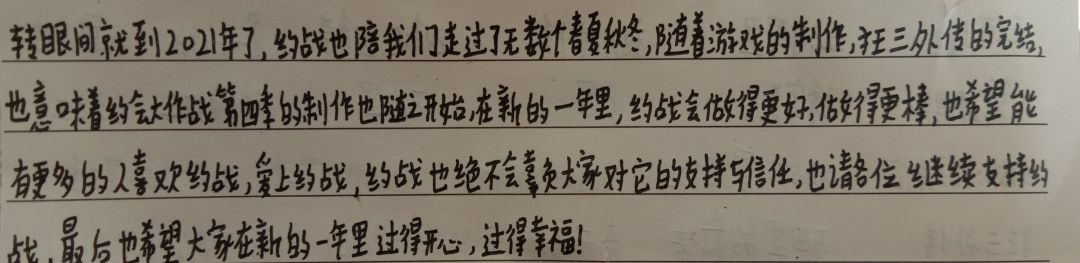 转眼间就到2021年了,约战也陪我们走过了无数个春夏秋冬,随着游戏的制作,狂三外传的完结,
也意味着约会大作战第四季的制作也随之开始,在新的一年里,约战会做得更好,做得更棒,也希望能
有更多的人喜欢约战,爱上约战,约战也绝不会辜负大家对它的支持与信任,也请各位继续支持约
战,最后也希望大家在新的一年里过得开心,过得幸福!